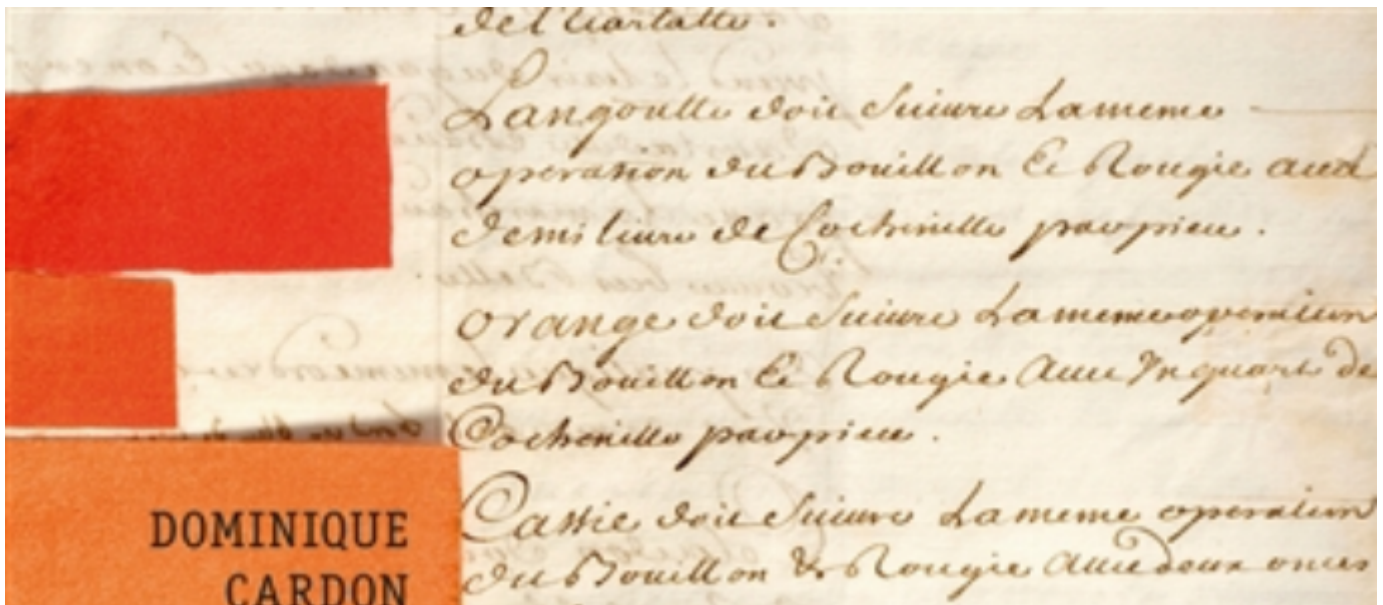 del'Ecarlatte.
Langoutte doit Suivre Lameme
operation du Bouillon Et Rougie aved
demi livre de Cochenille par piece.
Orange doit Suivre Lameme operation
du Bouillon Et Rougie avec Un quart de
Cochenille par piece.
Cassie doit Suivre La meme operation
du Bouillon & Rougie avec deux onces
DOMINIQUE
CARDON